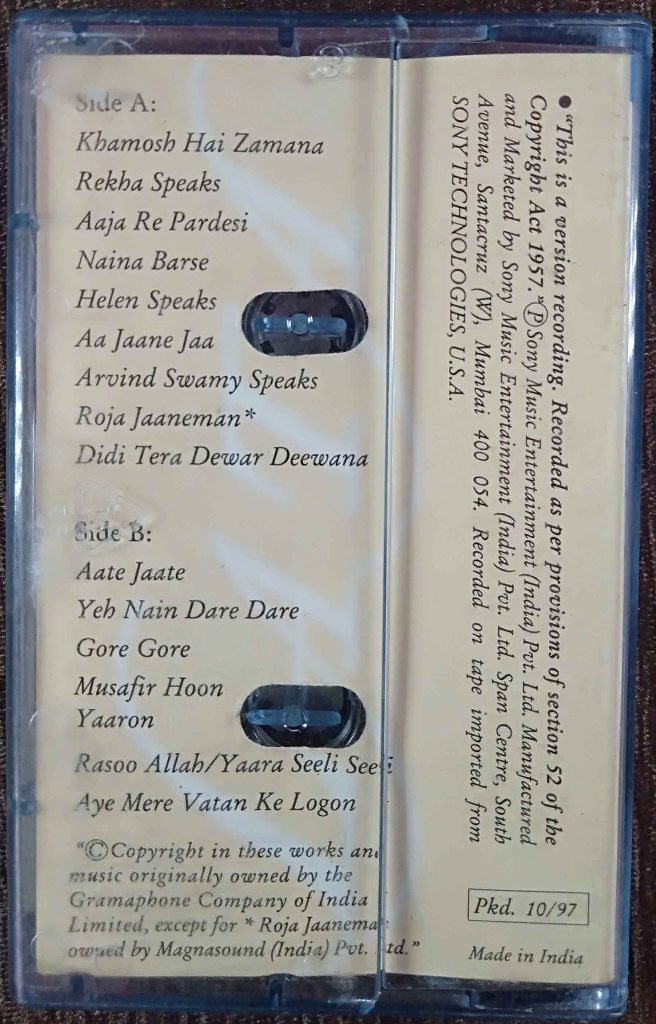 Side A:
Khamosh Hai Zamana
Rekha Speaks
Aaja Re Pardesi
Naina Barse
Helen Speaks
Aa Jaane Jaa
Arvind Swamy Speaks
Roja Jaaneman*
Didi Tera Dewar Deewana
Side B:
Aate Jaate
Yeh Nain Dare Dare
Gore Gore
Musafir Hoon
Yaaron
Rasoo Allah/Yaara Seeli Seeli
Aye Mere Vatan Ke Logon
"©Copyright in these works and
music originally owned by the
Gramaphone Company of India
Limited, except for * Roja Jaaneman
owned by Magnasound (India) Pvt. Ltd."
● "This is a version recording. Recorded as per provisions of section 52 of the
Copyright Act 1957."℗Sony Music Entertainment (India) Pvt. Ltd. Manufactured
and Marketed by Sony Music Entertainment (India) Pvt. Ltd. Span Centre, South
Avenue, Santacruz (W), Mumbai 400 054. Recorded on tape imported from
SONY TECHNOLOGIES, U.S.A.
Pkd. 10/97
Made in India